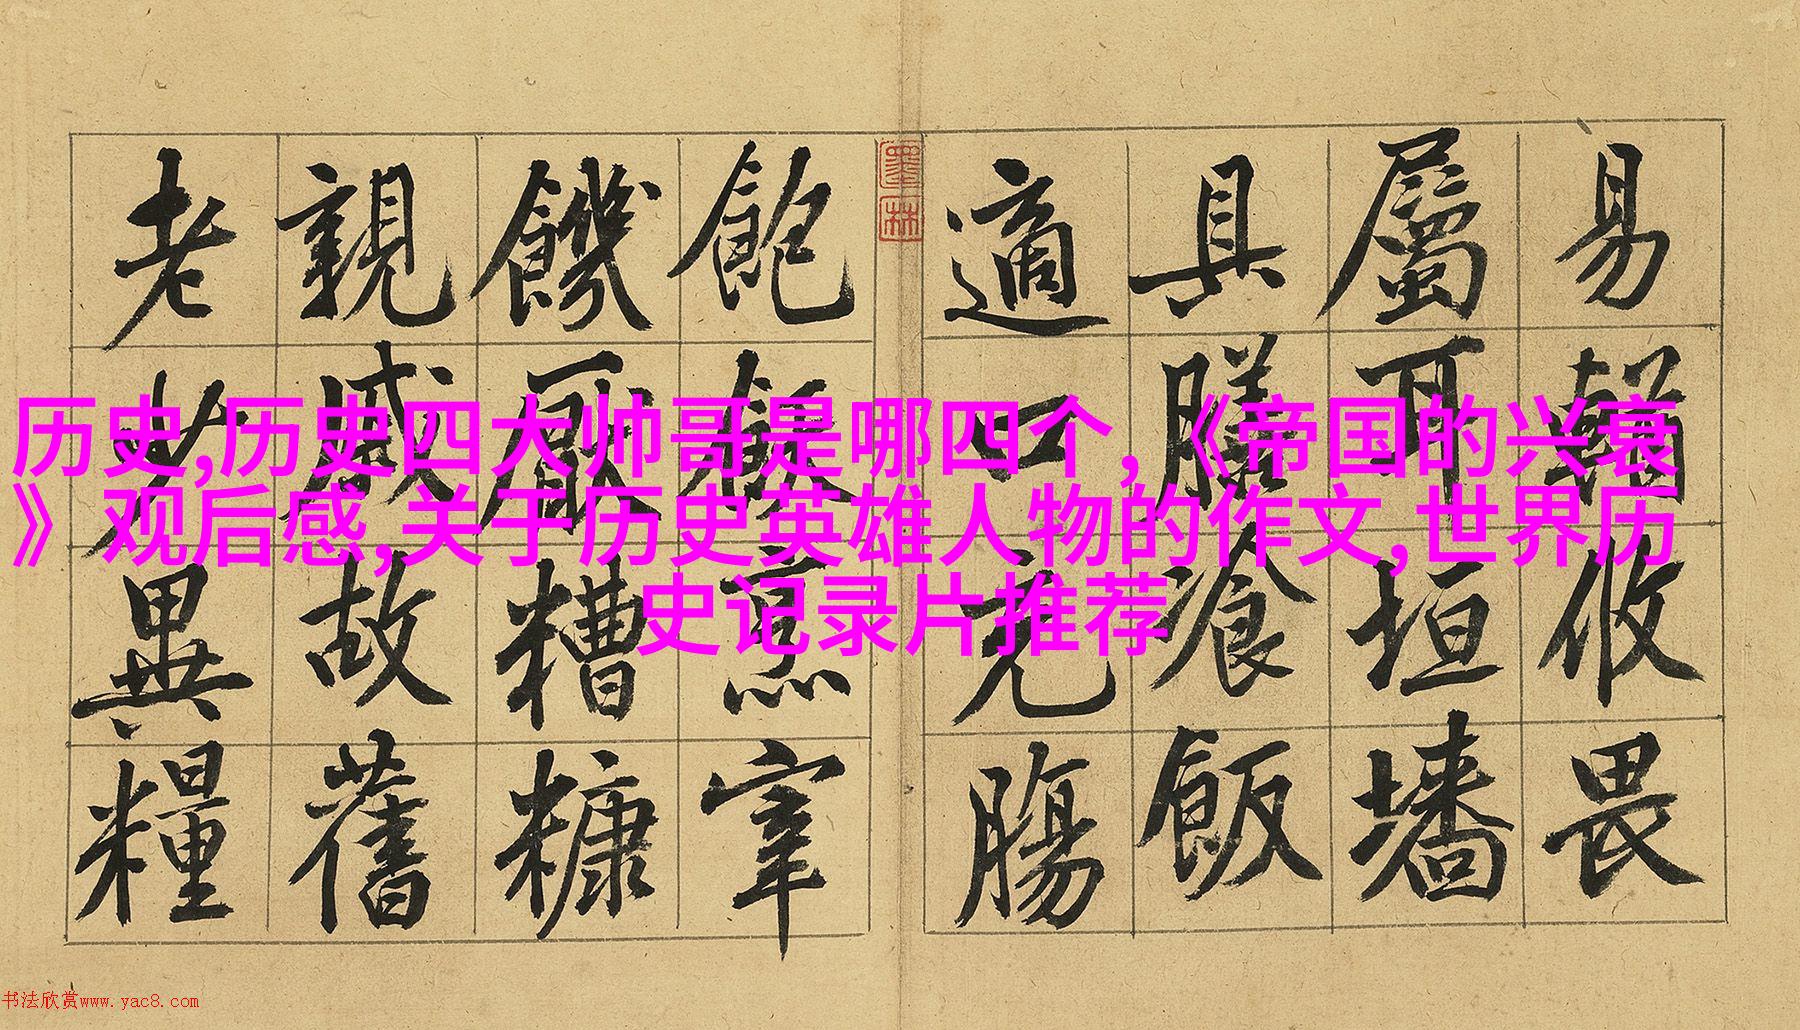 易輶攸畏
屬耳垣墻
具膳湌飯
適口充腸
墨林
飽飫烹宰
饑厭糟糠
親戚故舊
老少異糧
历史,历史四大帅哥是哪四个,《帝国的兴衰
》观后感,关于历史英雄人物的作文,世界历
史记录片推荐
书法欣赏www.yac8.com